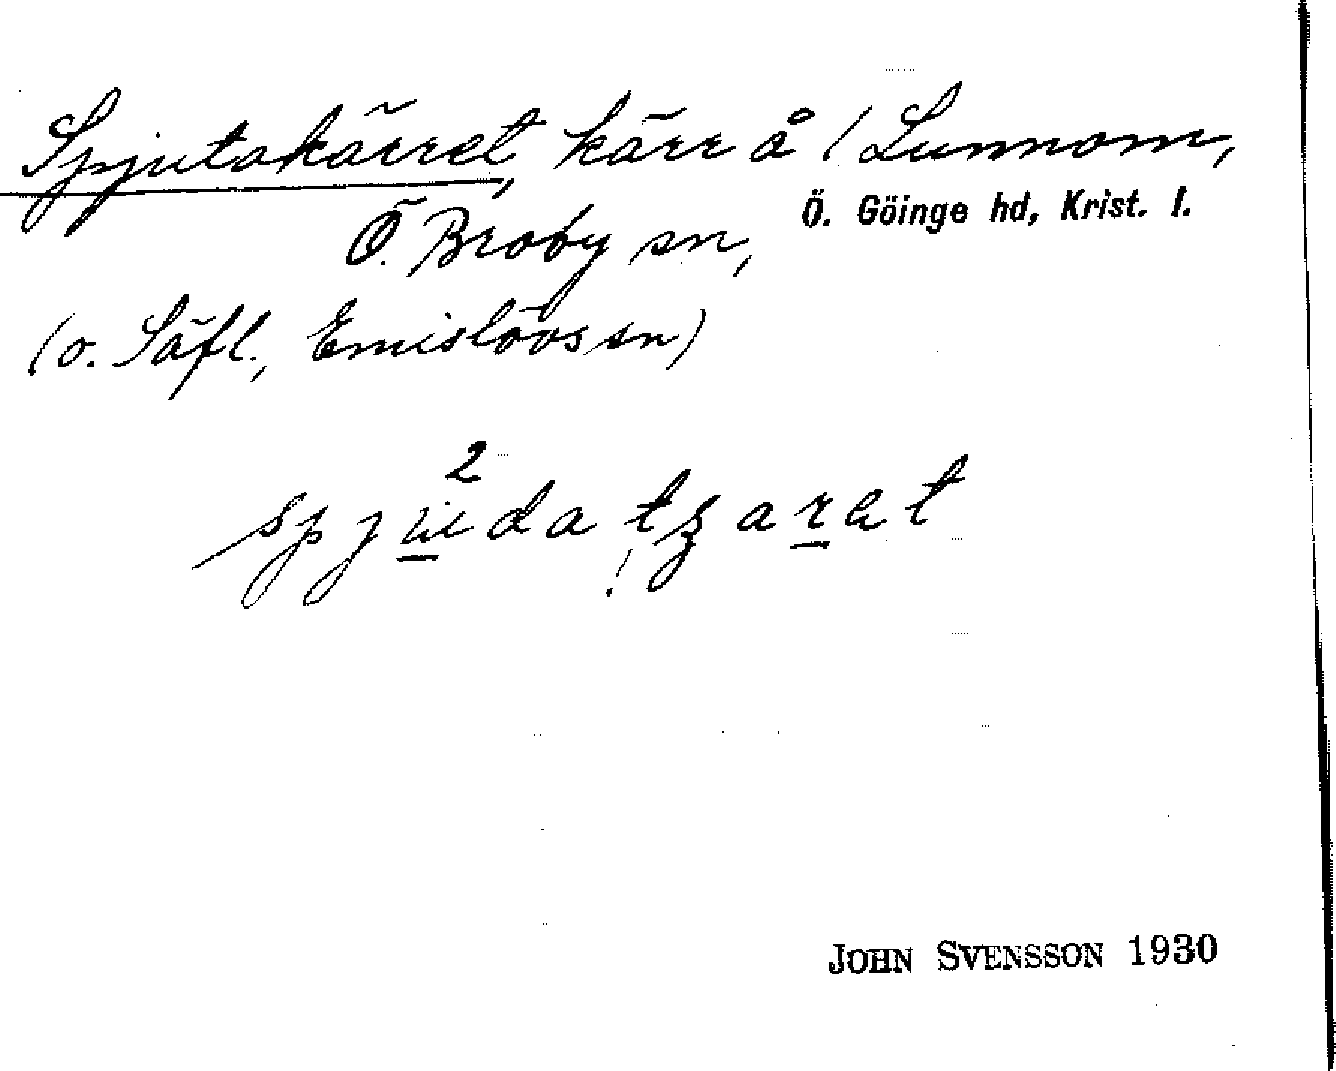 Spjutakärret, kärr å 1 Lunnom,
Ö. Broby sn, Ö. Göinge hd, Krist. l.
(o. Säfl., Emislövs sn)
JOHN SVENSSON 1930